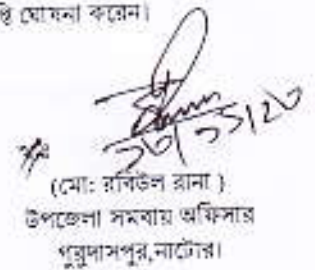 ঘোষনা করেন।
২৩/১১/২৩
(মো: রবিউল রানা )
উপজেলা সমবায় অফিসার
গুরুদাসপুর,নাটোর।